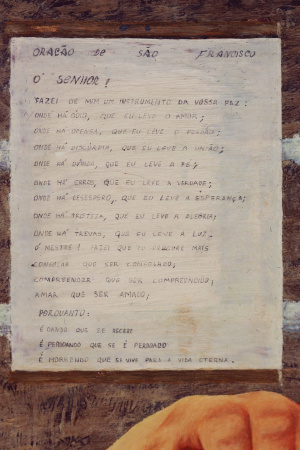 ORAÇÃO DE SÃO FRANCISCO
Ó SENHOR!
FAZEI DE MIM UM INSTRUMENTO DA VOSSA PAZ:
ONDE HÁ ÓDIO, QUE EU LEVE O AMOR;
ONDE HÁ OFENSA, QUE EU LEVE O PERDÃO;
ONDE HÁ DISCÓRDIA, QUE EU LEVE A UNIÃO;
ONDE HÁ DÚVIDA, QUE EU LEVE A FÉ;
ONDE HÁ ERROS, QUE EU LEVE A VERDADE;
ONDE HÁ DESESPERO, QUE EU LEVE A ESPERANÇA;
ONDE HÁ TRISTEZA, QUE EU LEVE A ALEGRIA;
ONDE HÁ TREVAS, QUE EU LEVE A LUZ.
Ó MESTRE! FAZEI QUE EU PROCURE MAIS
CONSOLAR QUE SER CONSOLADO;
COMPREENDER QUE SER COMPREENDIDO;
AMAR QUE SER AMADO;
PORQUANTO:
É DANDO QUE SE RECEBE
É PERDOANDO QUE SE É PERDOADO
É MORRENDO QUE SE VIVE PARA A VIDA ETERNA.